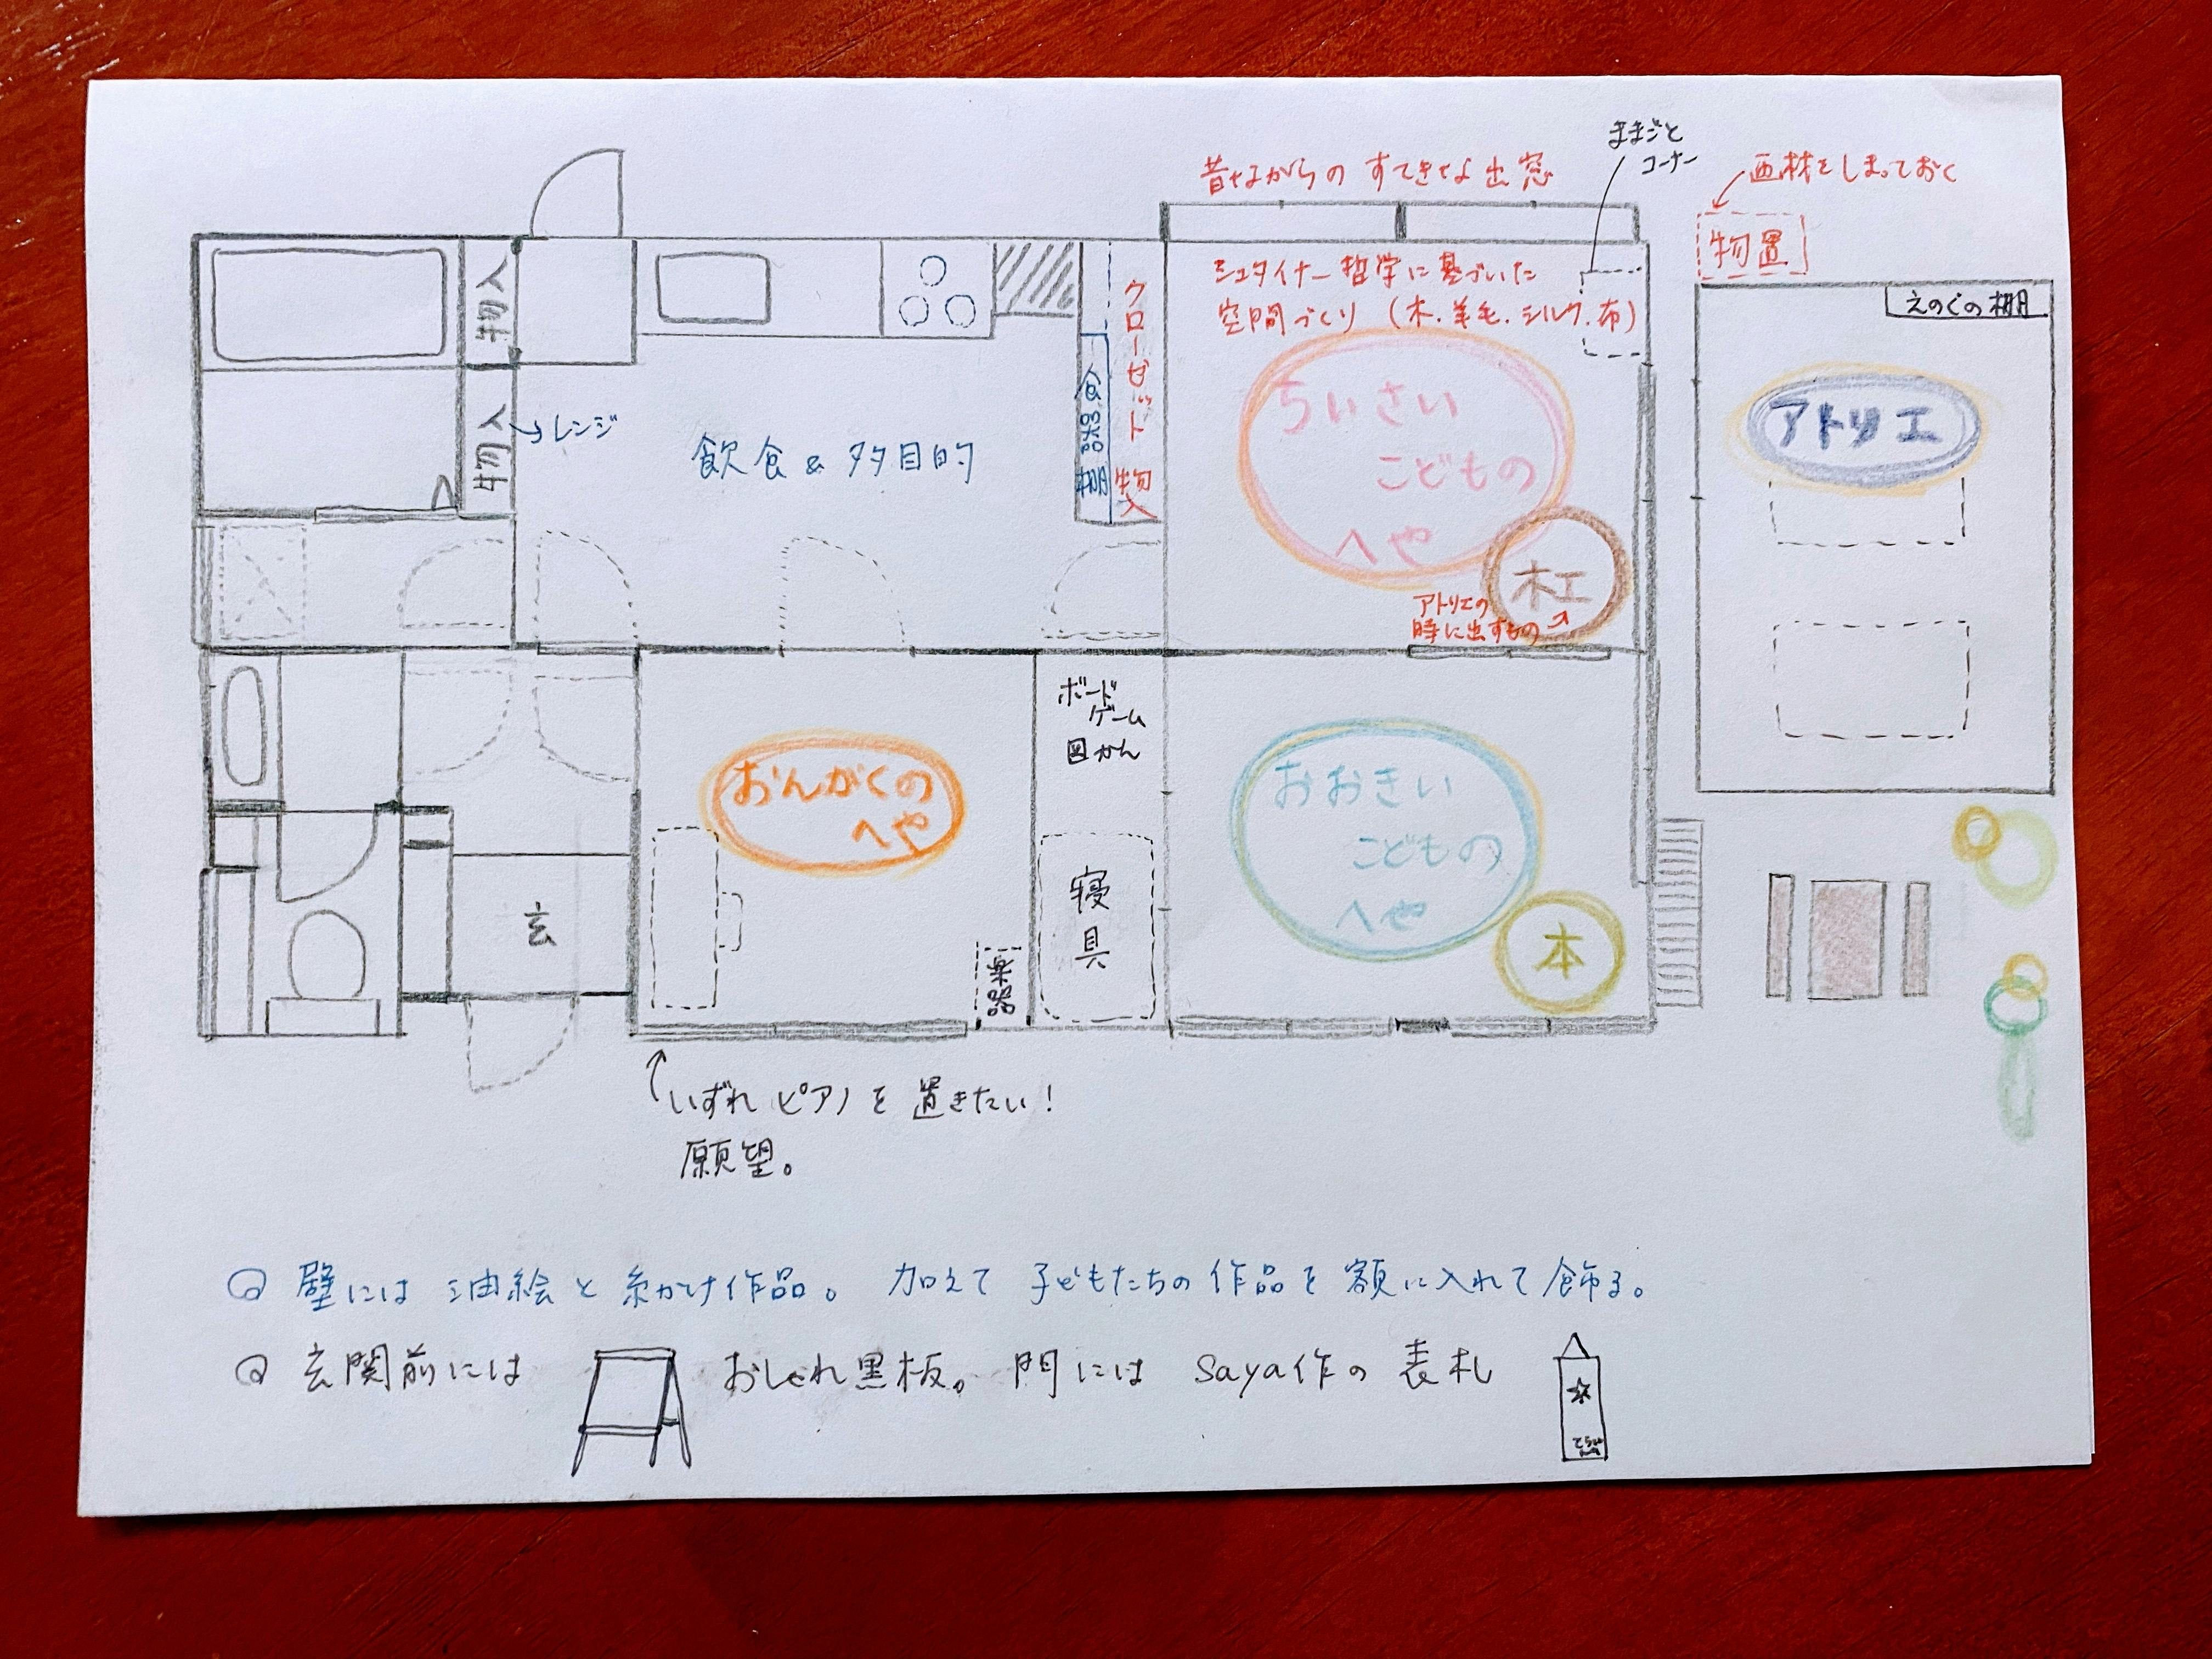 ままごと
コーナー
昔ながらの すてきな出窓
画材をしまっておく
物置
物入
物入
レンジ
クローゼット 物入
食器棚
シュタイナー哲学に基づいた
空間づくり (木・羊毛・シルク・布)
えのぐの棚
飲食&多目的
ちいさい
こどもの
へや
アトリエ
木工
アトリエの
時に出すもの
ボード
ゲーム
図かん
おんがくの
へや
おおきい
こどもの
へや
玄
寝具
楽器
本
いずれピアノを置きたい!
願望。
壁には 油絵と糸かけ作品。 加えて 子どもたちの作品を額に入れて飾る。
玄関前には おしゃれ黒板。 門には saya作の表札